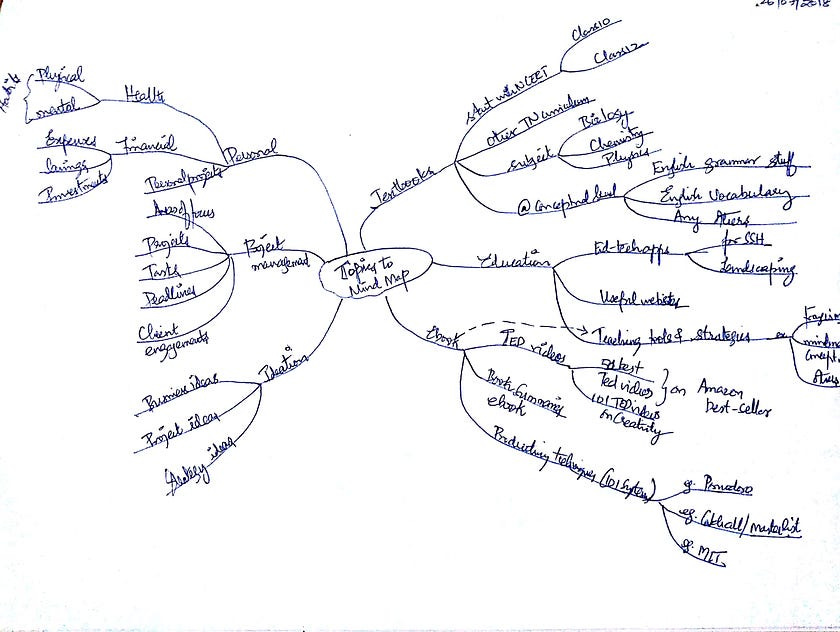 Topics to
Mind Map
Textbooks
Start with NCERT
Class 10
Class 12
Other TN curriculum
Subject
Biology
Chemistry
Physics
@ Conceptual level
English grammar stuff
English Vocabulary
Any others
Education
Ed-tech apps
for SSH
Landscaping
Useful websites
Teaching tools & strategies
Ebook
TED videos
best
Ted videos
101 TED videos
on Creativity
} on Amazon
best-seller
Book Summaries
ebook
techniques (101 systems)
eg. Pomodoro
eg. Catchall/masterlist
eg. MITs
Personal
Health
Physical
mental
Habits
Financial
Expenses
Savings
Investments
Personal projects
Project
management
Area of focus
Projects
Tasks
Deadlines
Client
engagements
Ideation
Business ideas
Project ideas
ideas